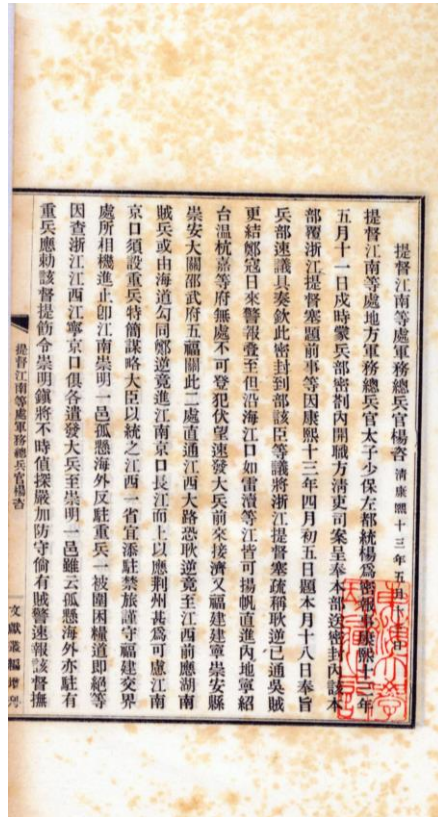 提督江南等處軍務總兵官楊咨 清康熙十三年五月十
提督江南等處地方軍務總兵官太子少保左都統楊爲密報事康熙十三年
五月十一日戌時蒙兵部密劄內開職方清吏司案呈奉本部送密封內該本
部覆浙江提督塞題前事等因康熙十三年四月初五日題本月十八日奉旨
兵部速議具奏欽此密封到部該臣等議將浙江提督塞疏稱耿逆已通吳賊
更結鄭寇日來警報疊至但沿海江口如雷瀆等江皆可揚帆直進內地寧紹
台溫杭嘉等府無處不可登犯伏望速發大兵前來接濟又福建建寧崇安縣
崇安大關邵武府五福關此二處直通江西大路恐耿逆竟至江西前應湖南
賊兵或由海道勾同鄭逆竟進江南京口長江而上以應荆州甚爲可慮江南
京口須設重兵特簡謀略大臣以統之江西一省宜添駐禁旅謹守福建交界
處所相機進止卽江南崇明一邑孤懸海外反駐重兵一被圍困糧道卽絕等
因查浙江江西江寧京口俱各遣發大兵至崇明一邑雖云孤懸海外亦駐有
重兵應勅該督提飭令崇明鎭將不時偵探嚴加防守倘有賊警速報該督撫
提督江南等處軍務總兵官楊咨
文獻叢編增刊